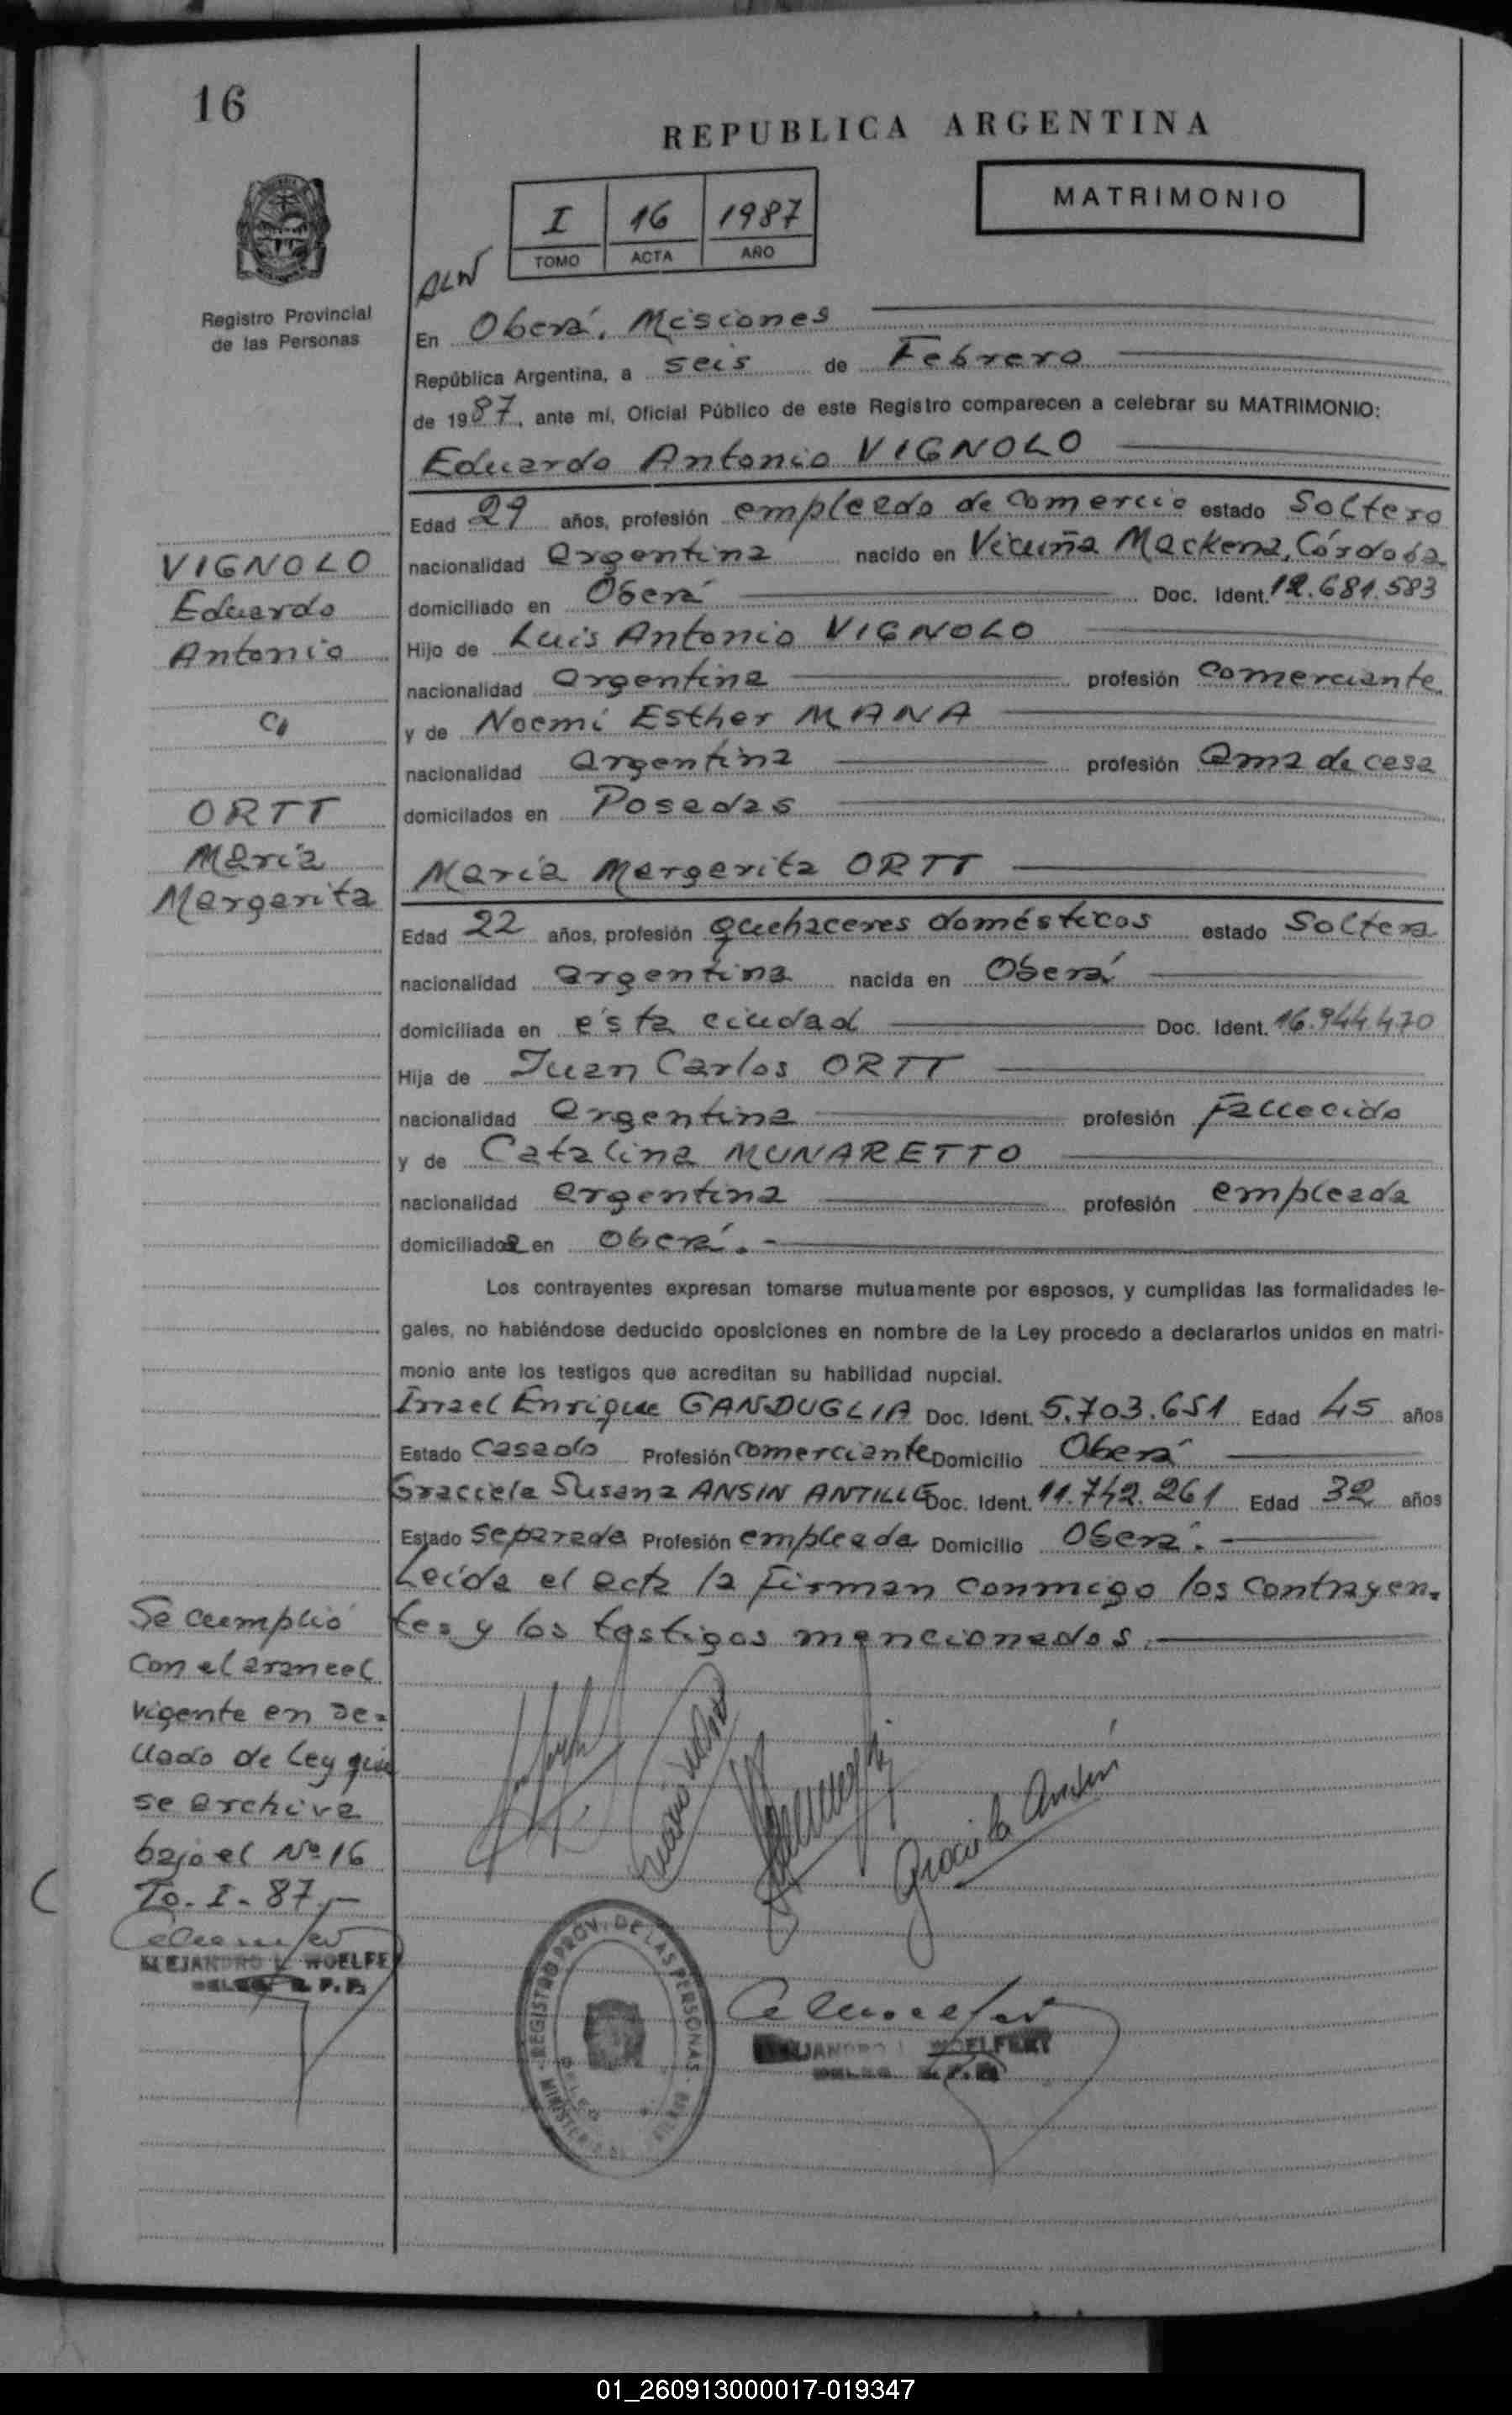 16
REPUBLICA ARGENTINA
MATRIMONIO
I 16 1987
TOMO ACTA AÑO
ALW
Registro Provincial
de las Personas
En Oberá, Misiones
República Argentina, a seis de Febrero
de 1987, ante mí, Oficial Público de este Registro comparecen a celebrar su MATRIMONIO:
Eduardo Antonio VIGNOLO
Edad 29 años, profesión empleado de comercio estado Soltero
nacionalidad argentina nacido en Vicuña Mackena, Córdoba
domiciliado en Oberá Doc. Ident. 12.681.583
Hijo de Luis Antonio VIGNOLO
nacionalidad argentina profesión comerciante
y de Noemí Esther MANA
nacionalidad argentina profesión ama de casa
domicilados en Posadas
VIGNOLO
Eduardo
Antonio
c/
ORTT
María
Margarita
María Margarita ORTT
Edad 22 años, profesión quehaceres domésticos estado Soltera
nacionalidad argentina nacida en Oberá
domiciliada en esta ciudad Doc. Ident. 16.944.470
Hija de Juan Carlos ORTT
nacionalidad argentina profesión Fallecido
y de Catalina MUNARETTO
nacionalidad argentina profesión empleada
domiciliada en Oberá.-
Los contrayentes expresan tomarse mutuamente por esposos, y cumplidas las formalidades le-
gales, no habiéndose deducido oposiciones en nombre de la Ley procedo a declararlos unidos en matri-
monio ante los testigos que acreditan su habilidad nupcial.
Enrique GANDUGLIA Doc. Ident. 5.703.651 Edad 45 años
Estado Casado Profesión comerciante Domicilio Oberá
Graciela Susana ANSIN ANTILLE Doc. Ident. 11.742.261 Edad 32 años
Estado separada Profesión empleada Domicilio Oberá.-
Leída el acta la firman conmigo los contrayen-
tes y los testigos mencionados.-
Se cumplió
con el arancel
vigente en se-
llado de Ley que
se archiva
bajo el Nº 16
To. I - 87.-
ALEJANDRO L. WOELFERT
DELEG. R.P.P.
Graciela Ansin
REGISTRO PROV. DE LAS PERSONAS
ALEJANDRO L. WOELFERT
DELEG. R.P.P.
01_260913000017-019347